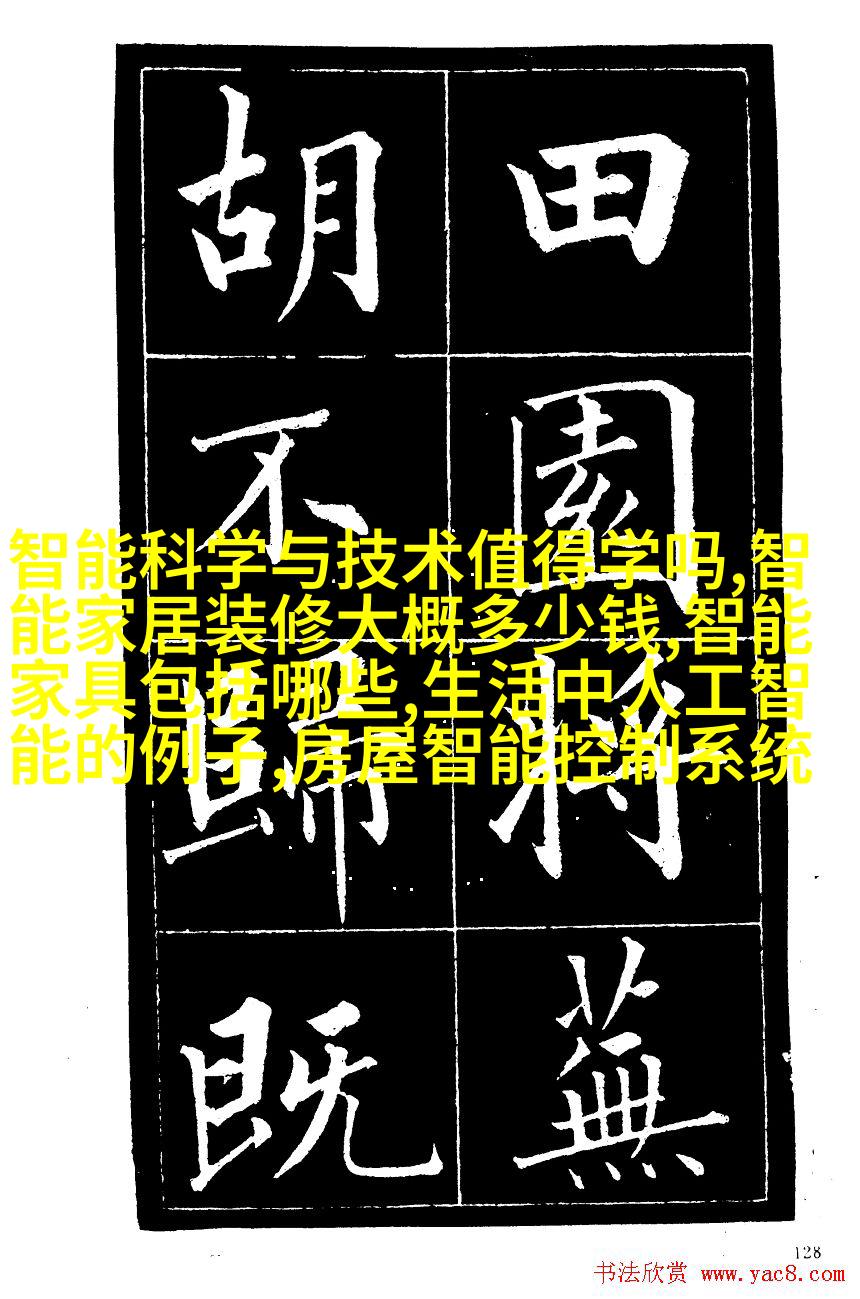 田園將蕪
胡不歸既
智能科学与技术值得学吗,智
能家居装修大概多少钱,智能
家具包括哪些,生活中人工智
能的例子,房屋智能控制系统
128
书法欣赏 www.yac8.com